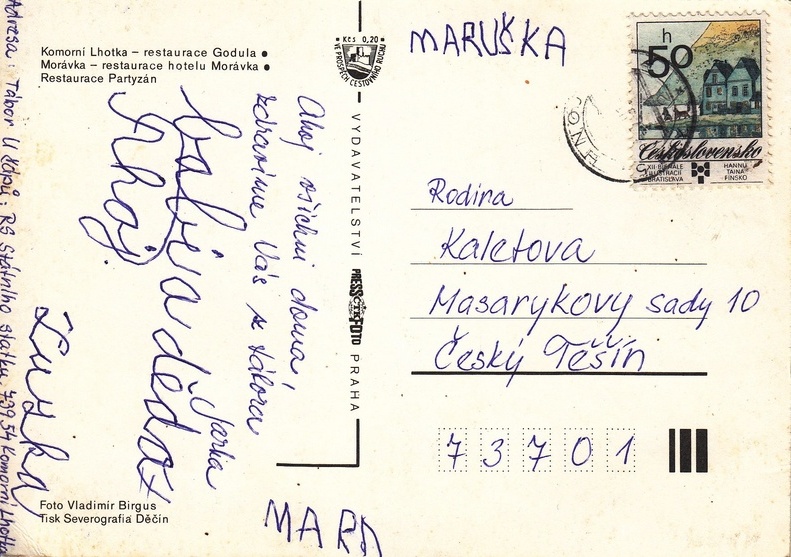 Komorní Lhotka – restaurace Godula ●
Morávka – restaurace hotelu Morávka ●
Restaurace Partyzán
Kčs 0,20
VE PROSPĚCH CESTOVNÍHO RUCHU
MARUŠKA
h
50
Československo
XII BIENÁLE
ILUSTRÁCIÍ
BRATISLAVA
HANNU
TAINA
FÍNSKO
Ahoj všichni doma,
zdravíme Vás z tábora
Jarka
babi a děda
Ahoj
Lucka
Adresa: Tábor U RS Státního statku. 739 54 Komorní Lhotka
VYDAVATELSTVÍ PRESSFOTO PRAHA
Rodina
Kaletova
Masarykovy sady 10
Český Těšín
73701
Foto Vladimír Birgus
Tisk Severografia Děčín
MAR